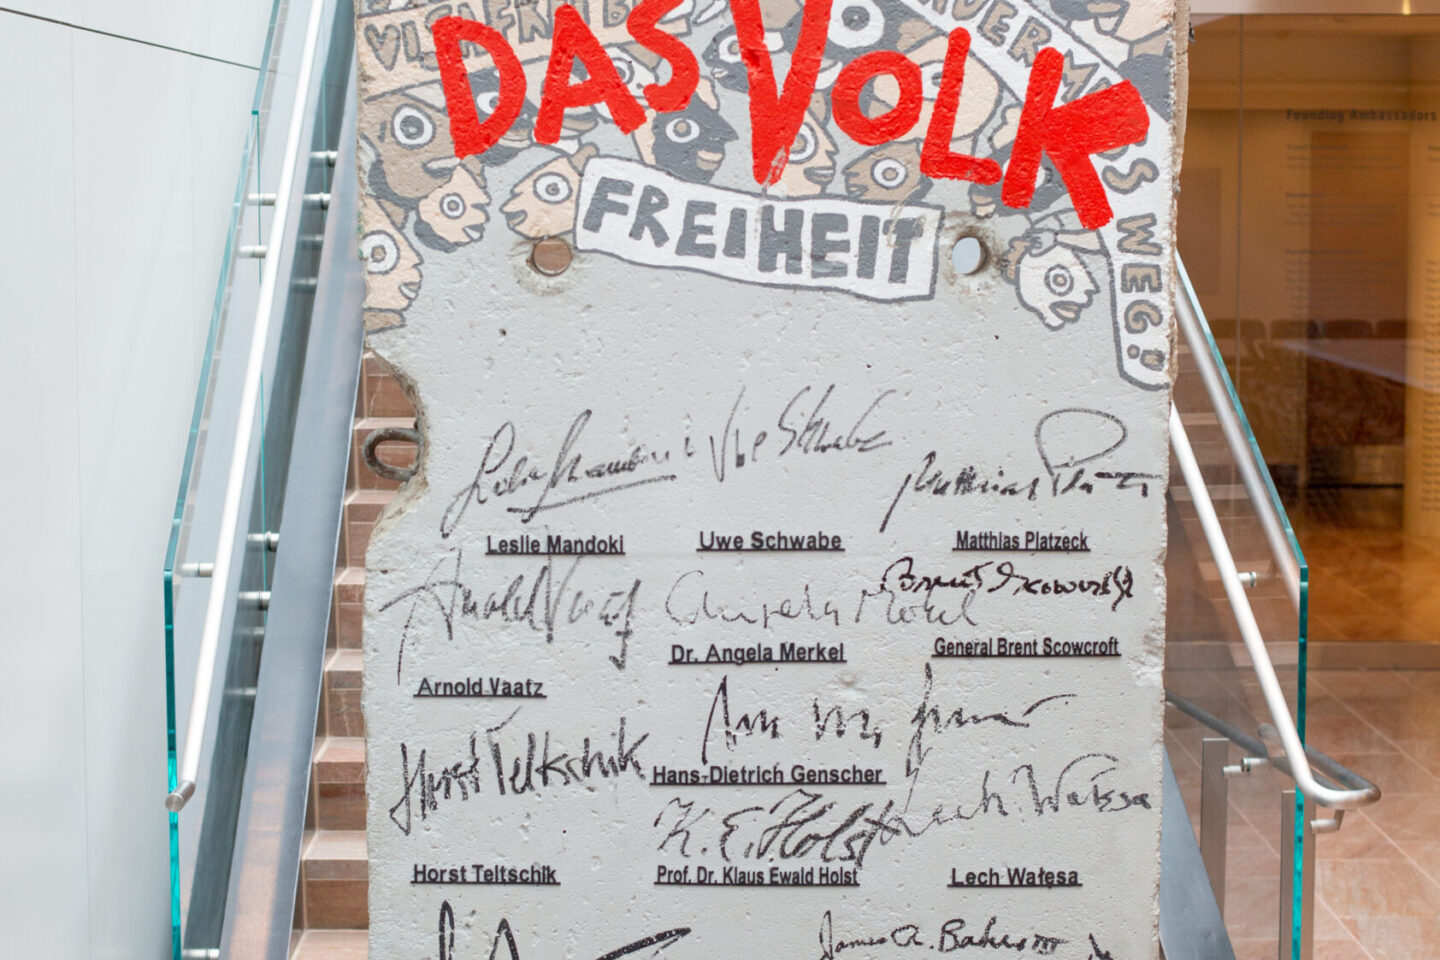 DAS VOLK
FREIHEIT
MUSS WEG!
Founding Ambassadors
Leslie Mandoki
Uwe Schwabe
Matthias Platzeck
Leslie Mandoki
Uwe Schwabe
Matthias Platzeck
Arnold Vaatz
Angela Merkel
Brent Scowcroft
Dr. Angela Merkel
General Brent Scowcroft
Arnold Vaatz
Horst Teltschik
Hans-Dietrich Genscher
K. E. Holst
Lech Wałęsa
Horst Teltschik
Prof. Dr. Klaus Ewald Holst
Lech Wałęsa
James A. Baker III